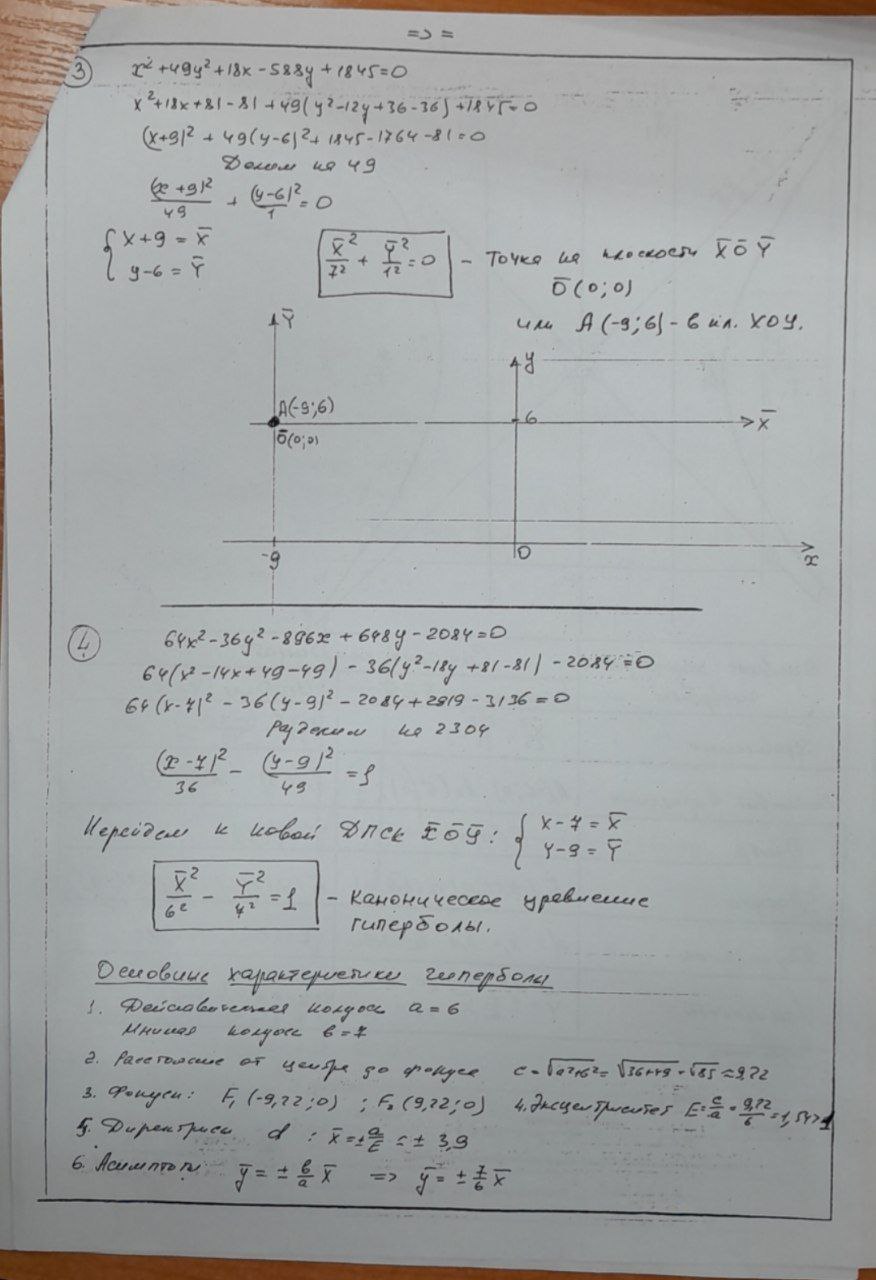 = 3 =
3
x² + 49y² + 18x - 588y + 1845 = 0
x² + 18x + 81 - 81 + 49(y² - 12y + 36 - 36) + 1845 = 0
(x+9)² + 49(y-6)² + 1845 - 1764 - 81 = 0
Делим на 49
(x+9)²/49 + (y-6)²/1 = 0
{ x+9 = X̄
{ y-6 = Ȳ
X̄²/7² + Ȳ²/1² = 0 - Точка на плоскости X̄ŌȲ
Ō(0;0)
или A(-9;6) - в пл. XOY.
Ȳ
y
A(-9;6)
6
X̄
Ō(0;0)
-9
0
x
4
64x² - 36y² - 896x + 648y - 2084 = 0
64(x² - 14x + 49 - 49) - 36(y² - 18y + 81 - 81) - 2084 = 0
64(x-7)² - 36(y-9)² - 2084 + 2919 - 3136 = 0
Разделим на 2304
(x-7)²/36 - (y-9)²/49 = 1
Перейдем к новой ДПСК X̄ŌȲ: { x-7 = X̄
{ y-9 = Ȳ
X̄²/6² - Ȳ²/4² = 1 - Каноническое уравнение
гиперболы.
Основные характеристики гиперболы
1. Действительная полуось a = 6
Мнимая полуось b = 7
2. Расстояние от центра до фокуса c = √a²+b² = √36+49 = √85 ≈ 9,22
3. Фокусы: F₁(-9,22;0) ; F₂(9,22;0) 4. Эксцентриситет E = c/a = 9,22/6 = 1,54 > 1
5. Директрисы d : x̄ = ± a/E = ± 3,9
6. Асимптоты ȳ = ± b/a x̄ => ȳ = ± 7/6 x̄